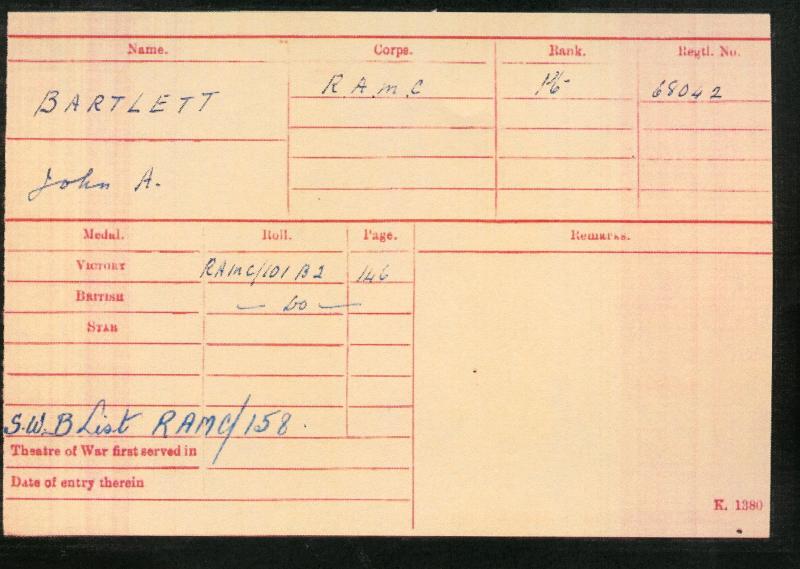 Name. Corps. Rank. Regtl. No.
BARTLETT R.A.M.C Pte 68042
John A.
Medal. Roll. Page. Remarks.
VICTORY RAMC/101 B2 146
BRITISH — do —
STAR
S.W.B List RAMC/158.
Theatre of War first served in
Date of entry therein
K. 1380